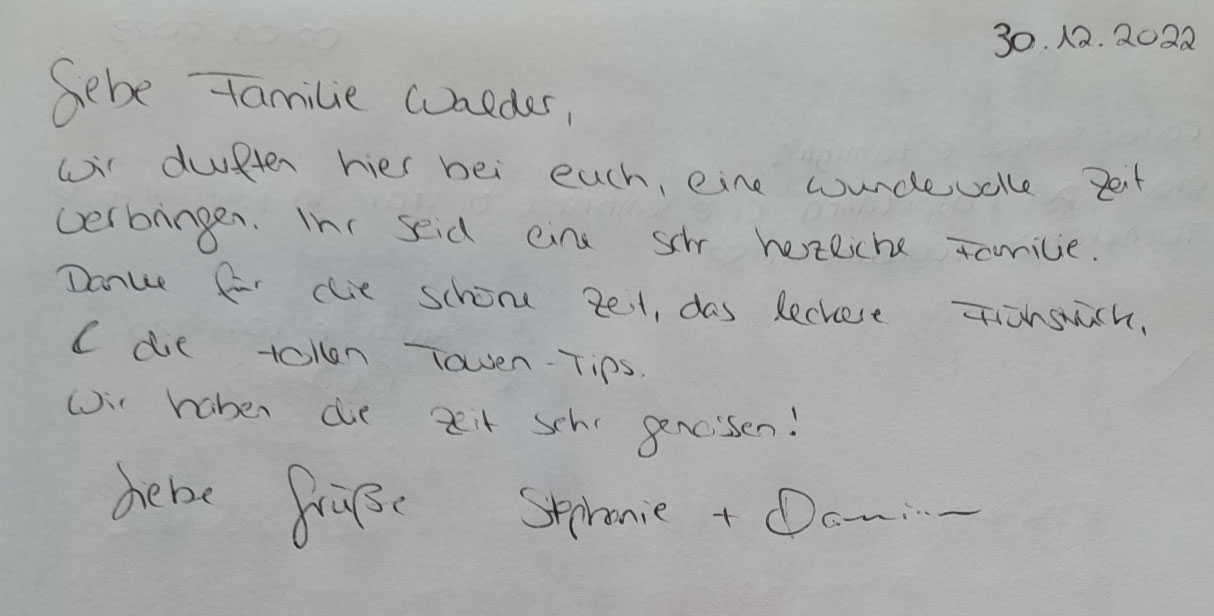 30.12.2022
Liebe Familie Walder,
wir durften hier bei euch, eine wundevolle Zeit
verbringen. Ihr seid eine sehr herzliche Familie.
Danke für die schöne Zeit, das leckere Frühstück,
& die tollen Touren-Tips.
Wir haben die Zeit sehr genossen!
Liebe Grüße Stephanie +